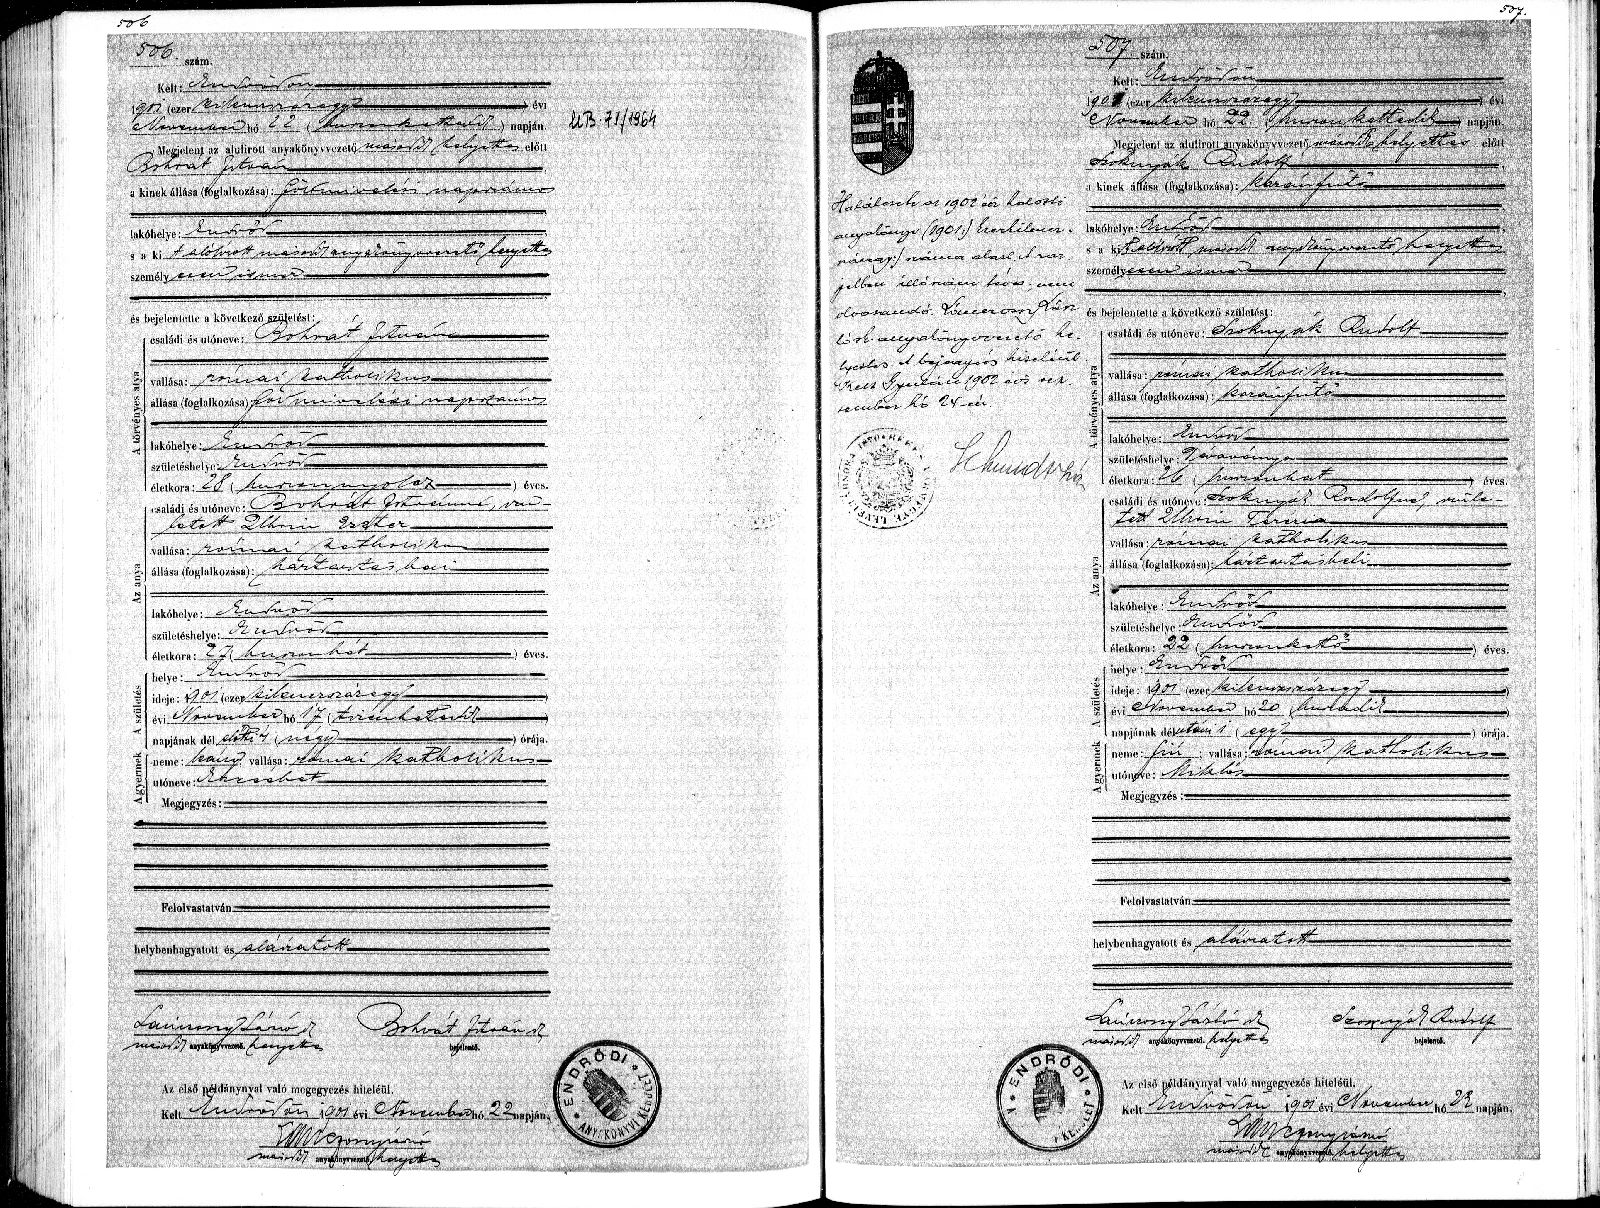 506
506. szám.
Kelt: Endrődön
1901 (ezer kilencszázegy) évi
November hó 22 (huszonkettedik) napján.
Megjelent az alulirott anyakönyvvezető másodh helyettes előtt
Bohvát István
a kinek állása (foglalkozása): földmivelési napszámos
lakóhelye: Endrőd
s a ki alólírott másodh anyakönyvvezető helyettes
személyesen ismer
és bejelentette a következő születést:
A törvényes atya
családi és utóneve: Bohvát István
vallása: római katholikus
állása (foglalkozása) földmivelési napszámos
lakóhelye: Endrőd
születéshelye: Endrőd
életkora: 28 (huszonnyolcz) éves.
Az anya
családi és utóneve: Bohvát Istvánné, szü-
letett Uhrin Eszter
vallása: római katholikus
állása (foglalkozása): háztartásbeli
lakóhelye: Endrőd
születéshelye: Endrőd
életkora: 27 (huszonhét) éves.
A születés
helye: Endrőd
ideje: 1901 (ezer kilencszázegy)
évi November hó 17 (tizenhetedik)
napjának dél előtti 4 (négy) órája.
A gyermek
neme: leány vallása: római katholikus
utóneve: Erzsébet
Megjegyzés:
Felolvastatván
helybenhagyatott és aláíratott
anyakönyvvezető. helyettes
Bohvát István
bejelentő.
Az első példánynyal való megegyezés hiteléül.
Kelt Endrődön 1901 évi November hó 22 napján.
anyakönyvvezető. helyettes
71/1964
ENDRŐDI
ANYAKÖNYVI KERÜLET
507.
507 szám.
Kelt: Endrődön
1901 (ezer kilencszázegy) évi
November hó 22 (huszonkettedik) napján.
Megjelent az alulirott anyakönyvvezető másodh helyettes előtt
Szoknyák Rudolf
a kinek állása (foglalkozása): kazánfűtő
lakóhelye: Endrőd
s a ki alólírott másodh anyakönyvvezető helyettes
személyesen ismer
és bejelentette a következő születést:
A törvényes atya
családi és utóneve: Szoknyák Rudolf
vallása: római katholikus
állása (foglalkozása): kazánfűtő
lakóhelye: Endrőd
születéshelye: Dévaványa
életkora: 26 (huszonhat) éves.
Az anya
családi és utóneve: Szoknyák Rudolfné, szüle-
tett Uhrin Terézia
vallása: római katholikus
állása (foglalkozása): háztartásbeli
lakóhelye: Endrőd
születéshelye: Endrőd
életkora: 22 (huszonkettő) éves.
A születés
helye: Endrőd
ideje: 1901 (ezer kilencszázegy)
évi November hó 20 (huszadik)
napjának délutáni 1 (egy) órája.
A gyermek
neme: fiú; vallása: római katholikus
utóneve: Miklós
Megjegyzés:
Felolvastatván
helybenhagyatott és aláíratott
anyakönyvvezető. helyettes
Szoknyák Rudolf
bejelentő.
Az első példánynyal való megegyezés hiteléül.
Kelt Endrődön 1901 évi November hó 22 napján.
anyakönyvvezető. helyettes
az 1902 évi halotti
anyakönyvvezető he-
lyettes A bejegyzés hiteléül
Kelt Gyulán 1902 évi
hó 24-én
ENDRŐDI